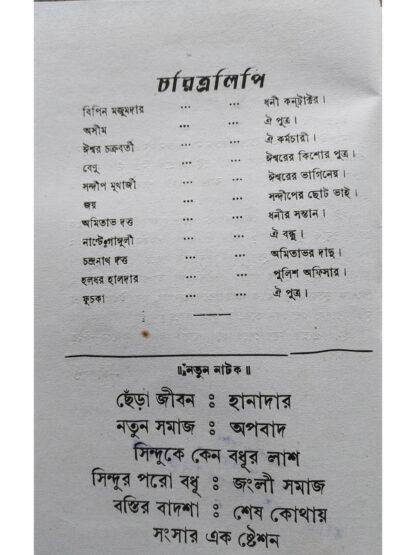 চরিত্রলিপি
বিপিন মজুমদার ... ... ধনী কনট্রাক্টর।
অসীম ... ... ঐ পুত্র।
ঈশ্বর চক্রবর্তী ... ... ঐ কর্মচারী।
বেণু ... ... ঈশ্বরের কিশোর পুত্র।
সন্দীপ মুখার্জী ... ... ঈশ্বরের ভাগিনেয়।
জয় ... ... সন্দীপের ছোট ভাই।
অমিতাভ দত্ত ... ... ধনীর সন্তান।
নাটেগাঙ্গুলী ... ... ঐ বন্ধু।
চন্দ্রনাথ দত্ত ... ... অমিতাভর দাদু।
হলধর হালদার ... ... পুলিশ অফিসার।
ফুচকা ... ... ঐ পুত্র।
॥ নতুন নাটক ॥
ছেঁড়া জীবন : হানাদার
নতুন সমাজ : অপবাদ
সিন্দুকে কেন বধূর লাশ
সিন্দুর পরো বধূ : জংলী সমাজ
বস্তির বাদশা : শেষ কোথায়
সংসার এক ষ্টেশন